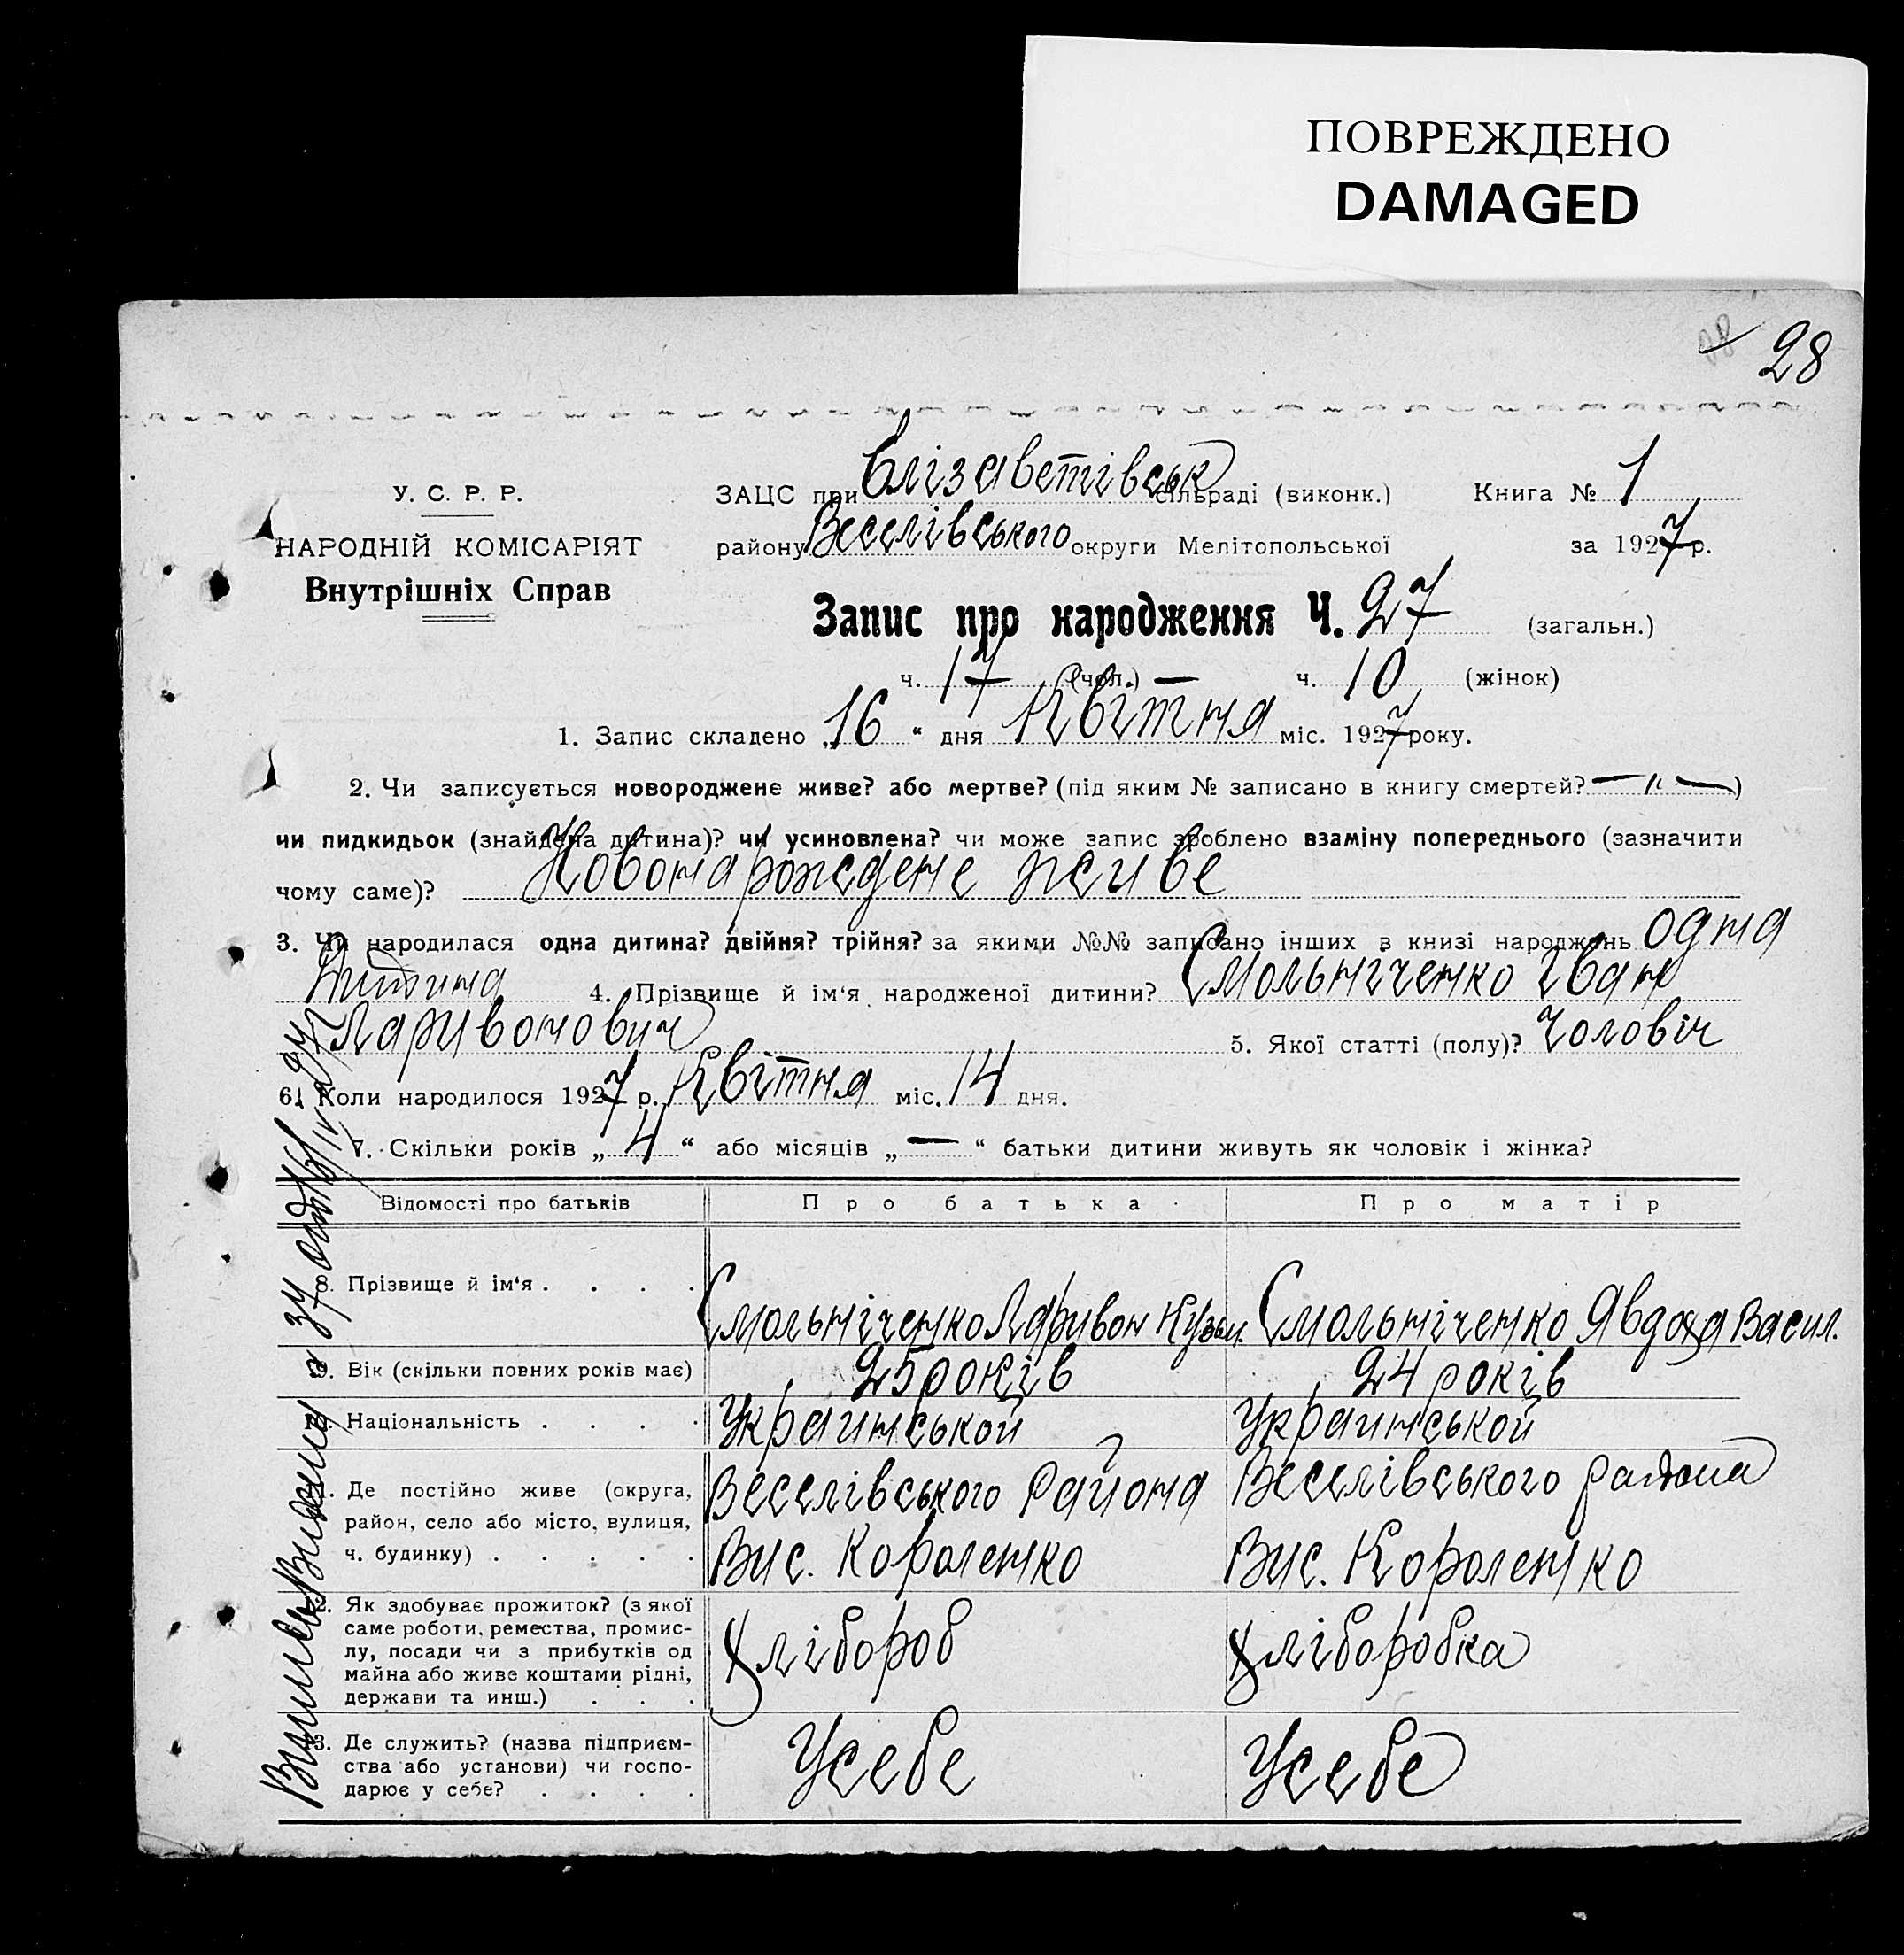 ПОВРЕЖДЕНО
DAMAGED
28
28
У. С. Р. Р.
НАРОДНІЙ КОМІСАРІЯТ
Внутрішніх Справ
ЗАЦС при Єлізаветівськ сільраді (виконк.) Книга № 1
району Веселівського округи Мелітопольської за 1927 р.
Запис про народження Ч. 27 (загальн.)
ч. 17 (чол.) — ч. 10 (жінок)
1. Запис складено „16“ дня Квітня міс. 1927 року.
2. Чи записується новороджене живе? або мертве? (під яким № записано в книгу смертей? — „ —)
чи пидкидьок (знайдена дитина)? чи усиновлена? чи може запис зроблено взаміну попереднього (зазначити
чому саме)? Новонарождене живе
3. Чи народилася одна дитина? двійня? трійня? за якими №№ записано інших в книзі народжень одна
дитина 4. Прізвище й ім‘я народженої дитини? Смольніченко Іван
Ларивонович 5. Якої статті (полу)? чоловіч
6. Коли народилося 1927 р. Квітня міс. 14 дня.
7. Скільки років „4“ або місяців „—“ батьки дитини живуть як чоловік і жінка?
Відомості про батьків Про батька Про матір
8. Прізвище й ім‘я . . . . Смольніченко Ларивон Кузьм. Смольніченко Явдоха Васил.
9. Вік (скільки повних років має) 25 років 24 років
Національність . . . . Украинськой Украинськой
Де постійно живе (округа, район, село або місто, вулиця, ч. будинку) . . . . . Веселівського Района Веселівського района
Вис. Короленко Вис. Короленко
Як здобуває прожиток? (з якої саме роботи, ремества, промислу, посади чи з прибутків од майна або живе коштами рідні, держави та инш.) . . . Хлібороб Хліборобка
13. Де служить? (назва підприємства або установи) чи господарює у себе? . . . . Усебе Усебе